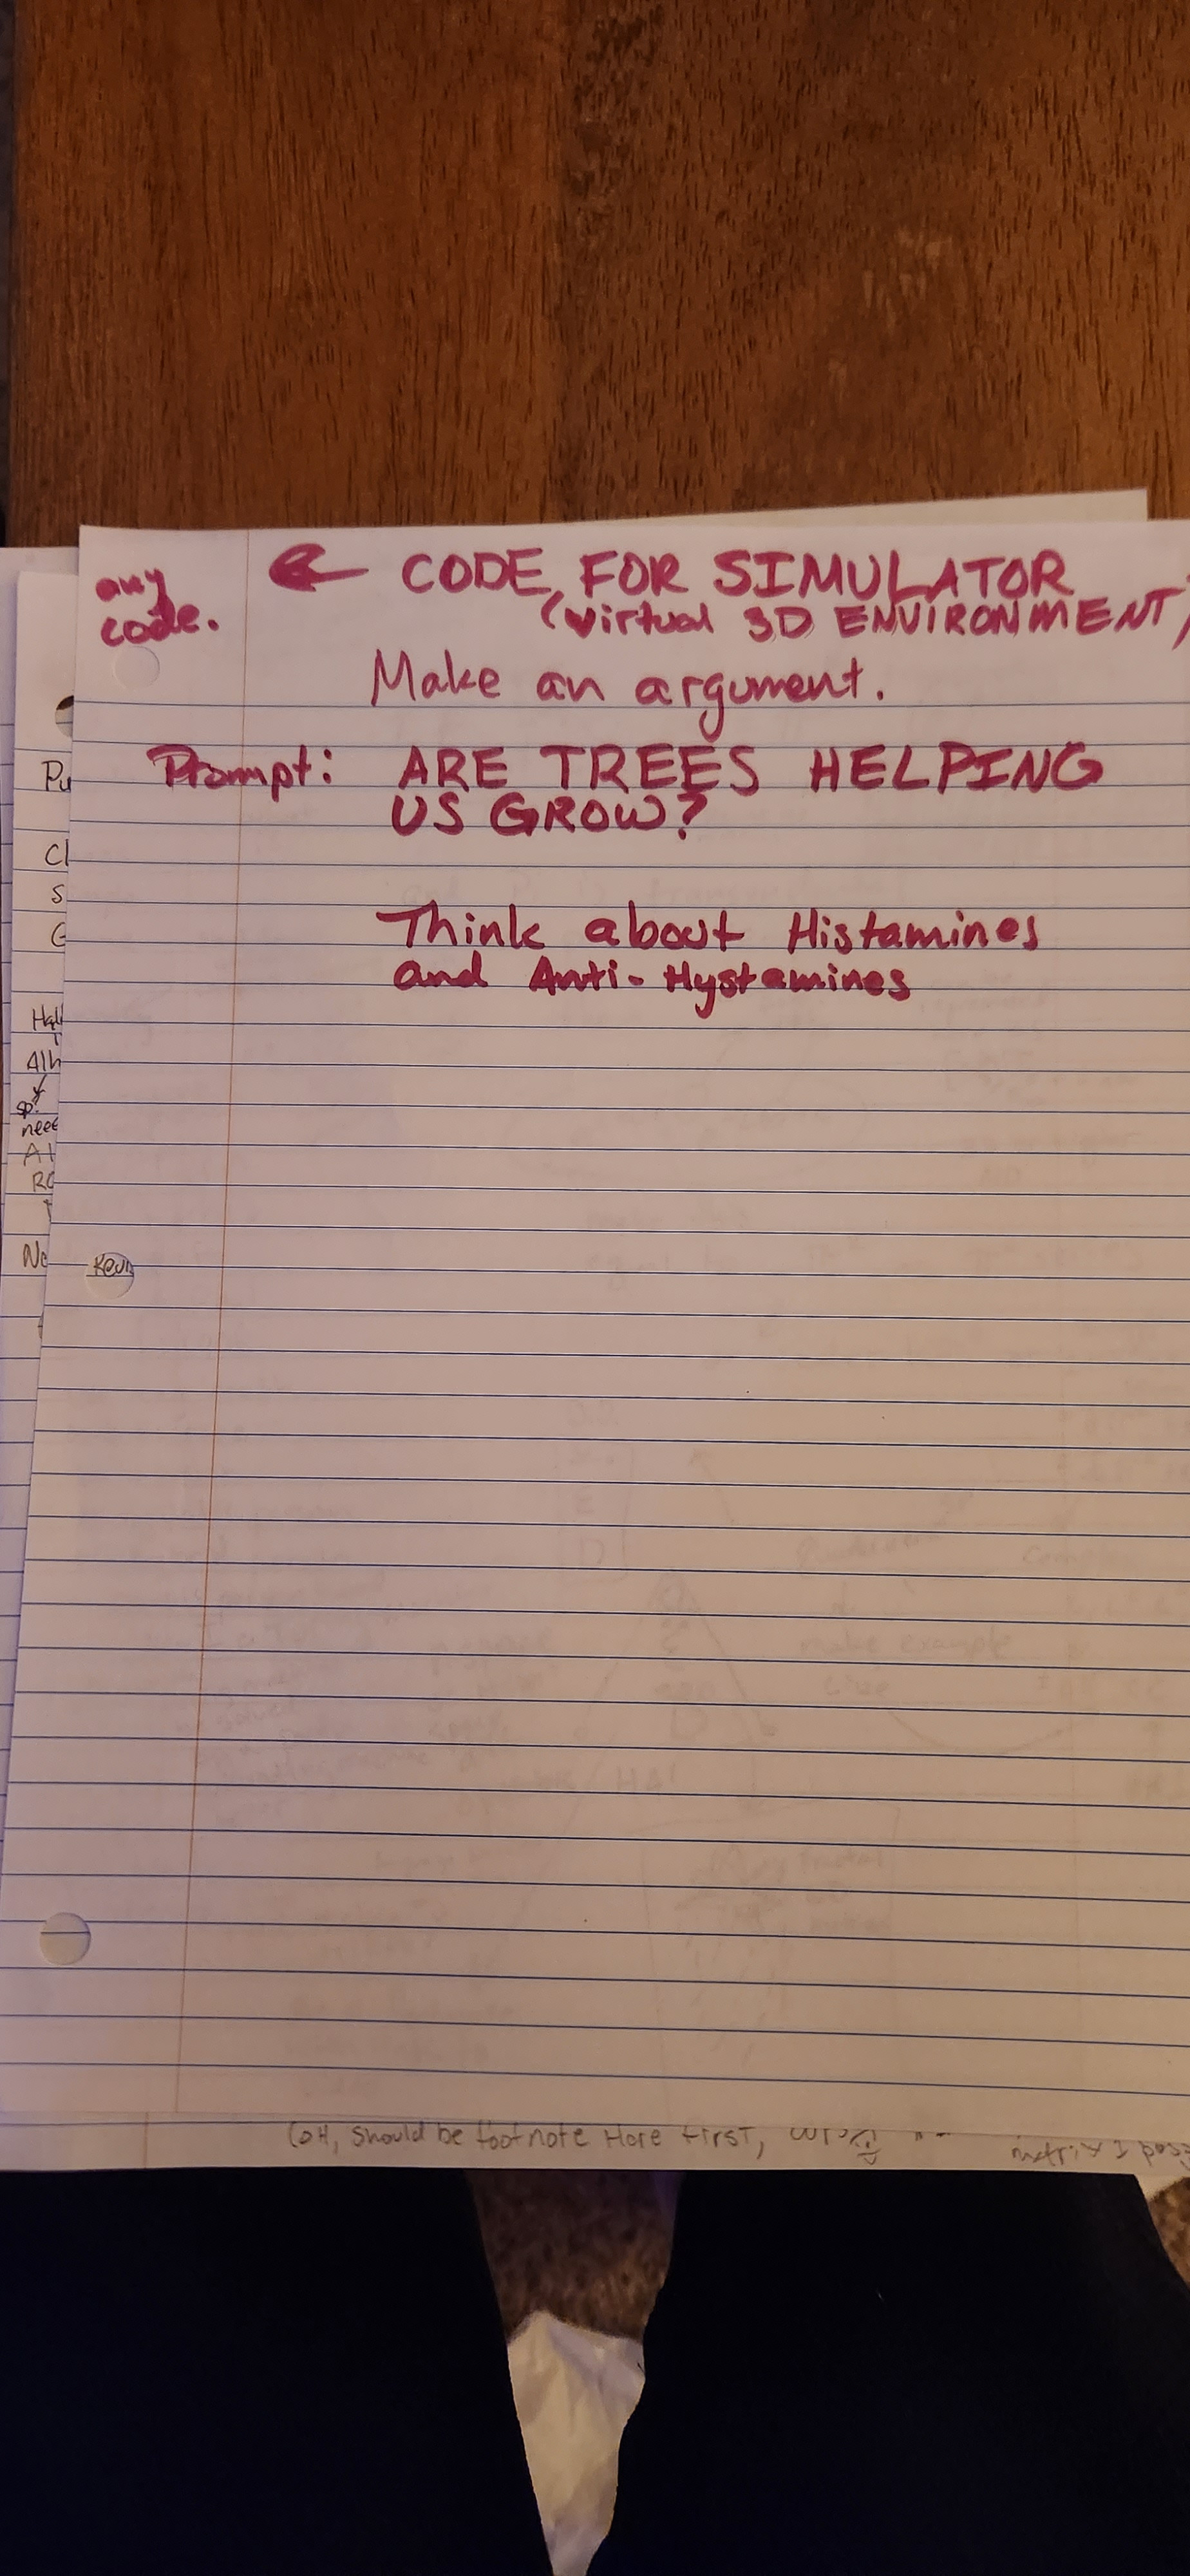 any
code.
← CODE FOR SIMULATOR
(virtual 3D ENVIRONMENT)
Make an argument.
Prompt: ARE TREES HELPING
US GROW?
Think about Histamines
and Anti-Hystamines
Pu
Cl
S
G
Hal
Alh
sp?
neee
Al
RC
No
Kevin
(OH, should be footnote Here first,
matrix I